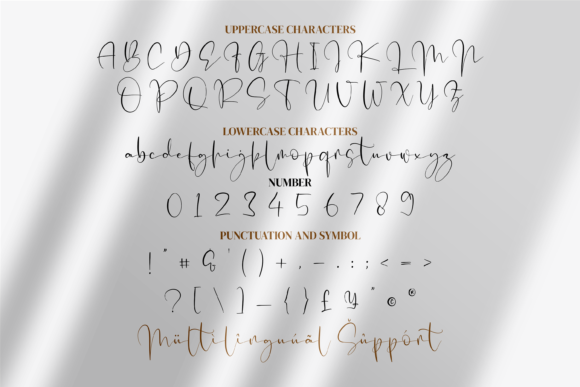 UPPERCASE CHARACTERS
A B C D E F G H I J K L M N
O P Q R S T U V W X Y Z
LOWERCASE CHARACTERS
abcdefghijklmnopqrstuvwxyz
NUMBER
0 1 2 3 4 5 6 7 8 9
PUNCTUATION AND SYMBOL
! " # & ' ( ) + , – . : ; < = >
? [ \ ] _ { } £ ¥ " © ®
Müttilinguúãl Šûppórt